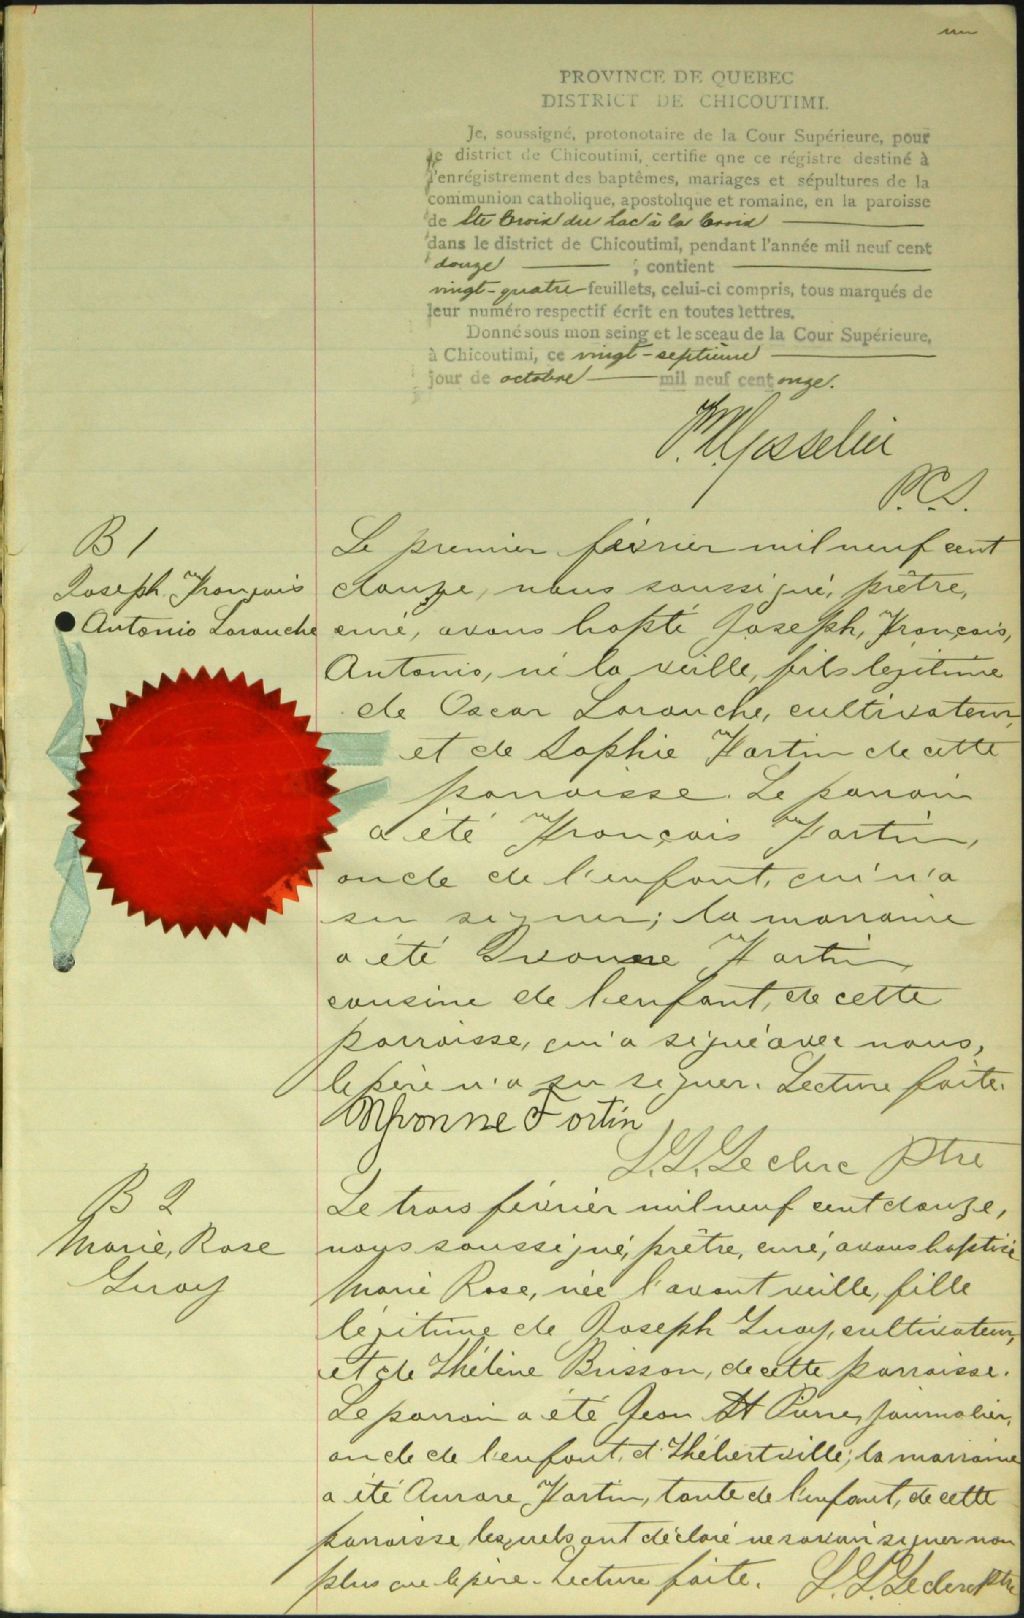 PROVINCE DE QUEBEC
DISTRICT DE CHICOUTIMI.
Je, soussigné, protonotaire de la Cour Supérieure, pour
le district de Chicoutimi, certifie qne ce régistre destiné à
l'enrégistrement des baptêmes, mariages et sépultures de la
communion catholique, apostolique et romaine, en la paroisse
de Ste Croix du Lac à la Croix
dans le district de Chicoutimi, pendant l'année mil neuf cent
douze ; contient
vingt-quatre feuillets, celui-ci compris, tous marqués de
leur numéro respectif écrit en toutes lettres.
Donné sous mon seing et le sceau de la Cour Supérieure,
à Chicoutimi, ce vingt-septième
jour de octobre mil neuf cent onze.
P.C.S.
B 1
Joseph François
Antonio Larouche
Le premier février mil neuf cent
douze, nous soussigné, prêtre,
curé, avons bapté Joseph, François,
Antonio, né la veille, fils légitime
de Oscar Larouche, cultivateur,
et de Sophie Fortin de cette
parroisse. Le parrain
a été François Fortin,
oncle de l'enfant, qui n'a
su signer; la marraine
a été Yvonne Fortin,
cousine de l'enfant, de cette
parroisse, qui a signé avec nous,
le père n'a su signer. Lecture faite.
Yvonne Fortin
L.G. Leclerc Ptre
B 2
Marie, Rose
Guay
Le trois février mil neuf cent douze,
nous soussigné, prêtre, curé, avons baptisé
Marie Rose, née l'avant veille, fille
légitime de Joseph Guay, cultivateur,
et de Thélène Brisson, de cette parroisse.
Le parrain a été Jean St Pierre, journalier,
oncle de l'enfant, d'Hébertville; la marraine
a été Aurore Fortin, tante de l'enfant, de cette
parroisse, lesquels ont déclaré ne savoir signer non
plus que le père. Lecture faite. L.G. Leclerc Ptre